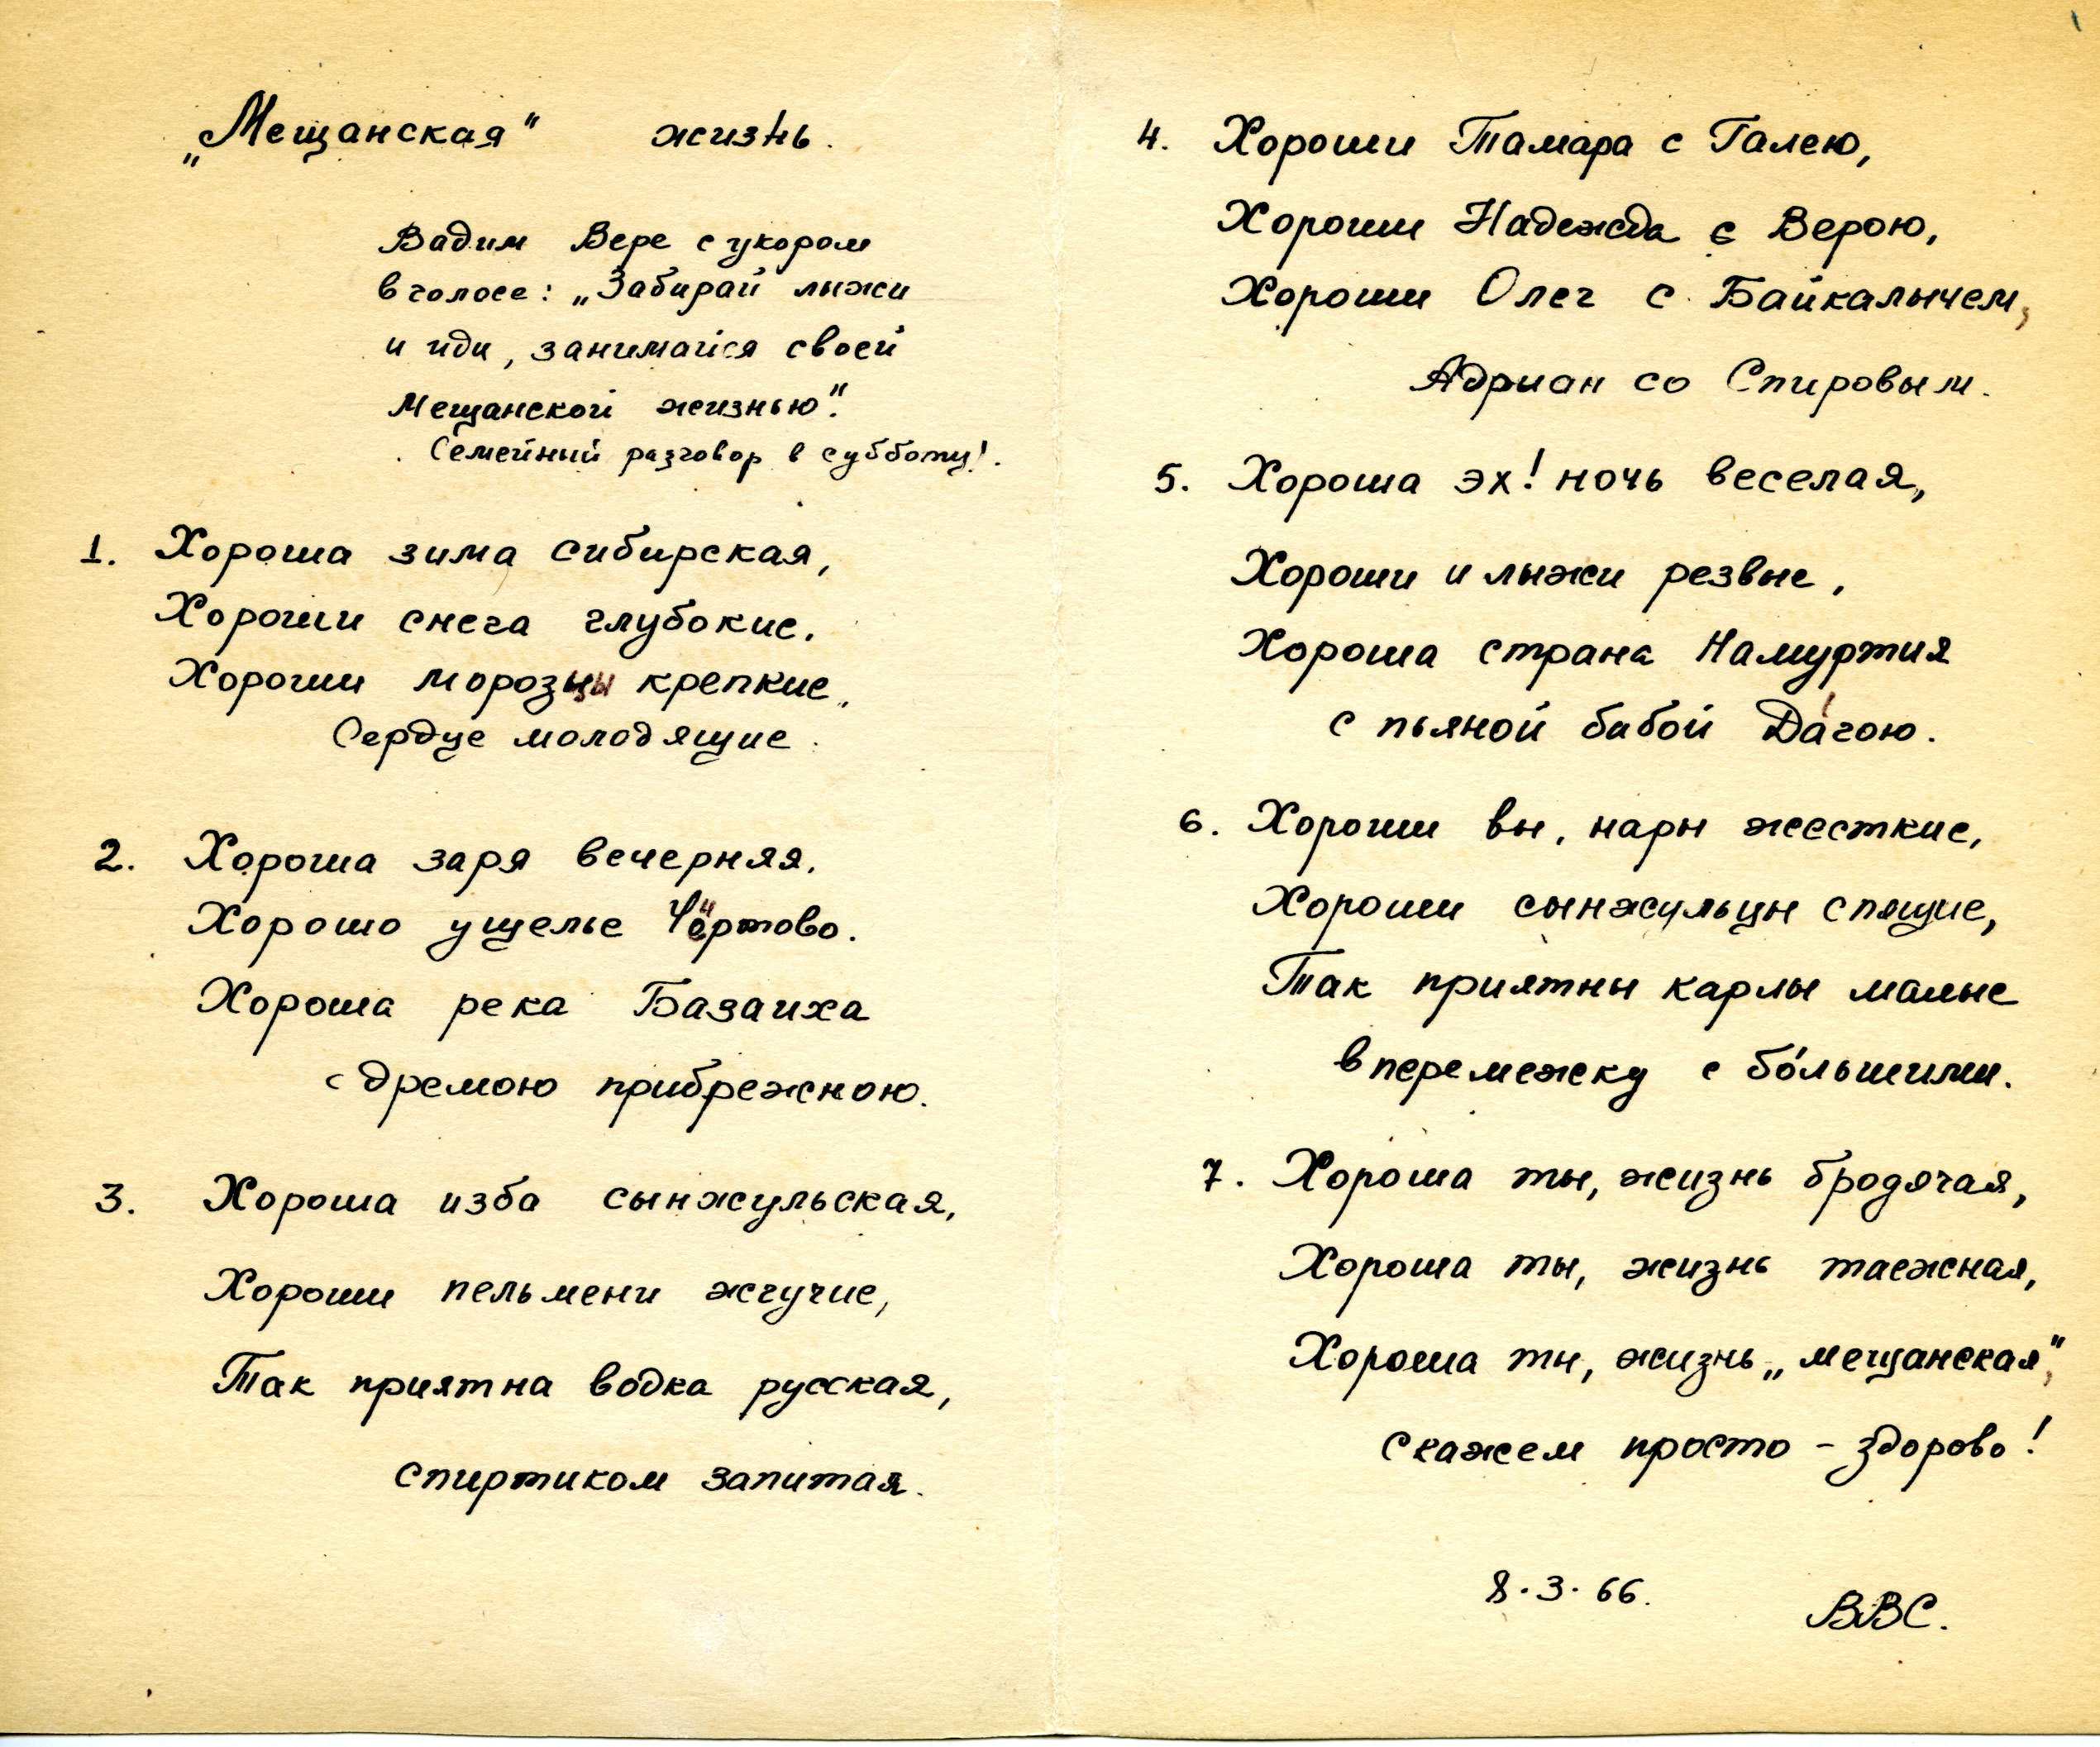 „Мещанская" жизнь.
Вадим Вере с укором
в голосе: „Забирай лыжи
и иди, занимайся своей
мещанской жизнью".
Семейный разговор в субботу!.
1. Хороша зима сибирская,
Хороши снега глубокие.
Хороши морозцы крепкие,
Сердце молодящие.
2. Хороша заря вечерняя.
Хорошо ущелье Чёртово.
Хороша река Базаиха
с дремою прибрежною.
3. Хороша изба сынжульская,
Хороши пельмени жгучие,
Так приятна водка русская,
спиртиком запитая.
4. Хороши Тамара с Галею,
Хороши Надежда с Верою,
Хороши Олег с Байкалычем,
Адриан со Спировым.
5. Хороша эх! ночь веселая,
Хороши и лыжи резвые,
Хороша страна Намуртия
с пьяной бабой Да́гою.
6. Хороши вы, нары жесткие,
Хороши сынжульцы спящие,
Так приятны карлы малые
вперемежку с бо́льшими.
7. Хороша ты, жизнь бродячая,
Хороша ты, жизнь таежная,
Хороша ты, жизнь „мещанская",
скажем просто - здорово!
8.3.66.
ВВС.